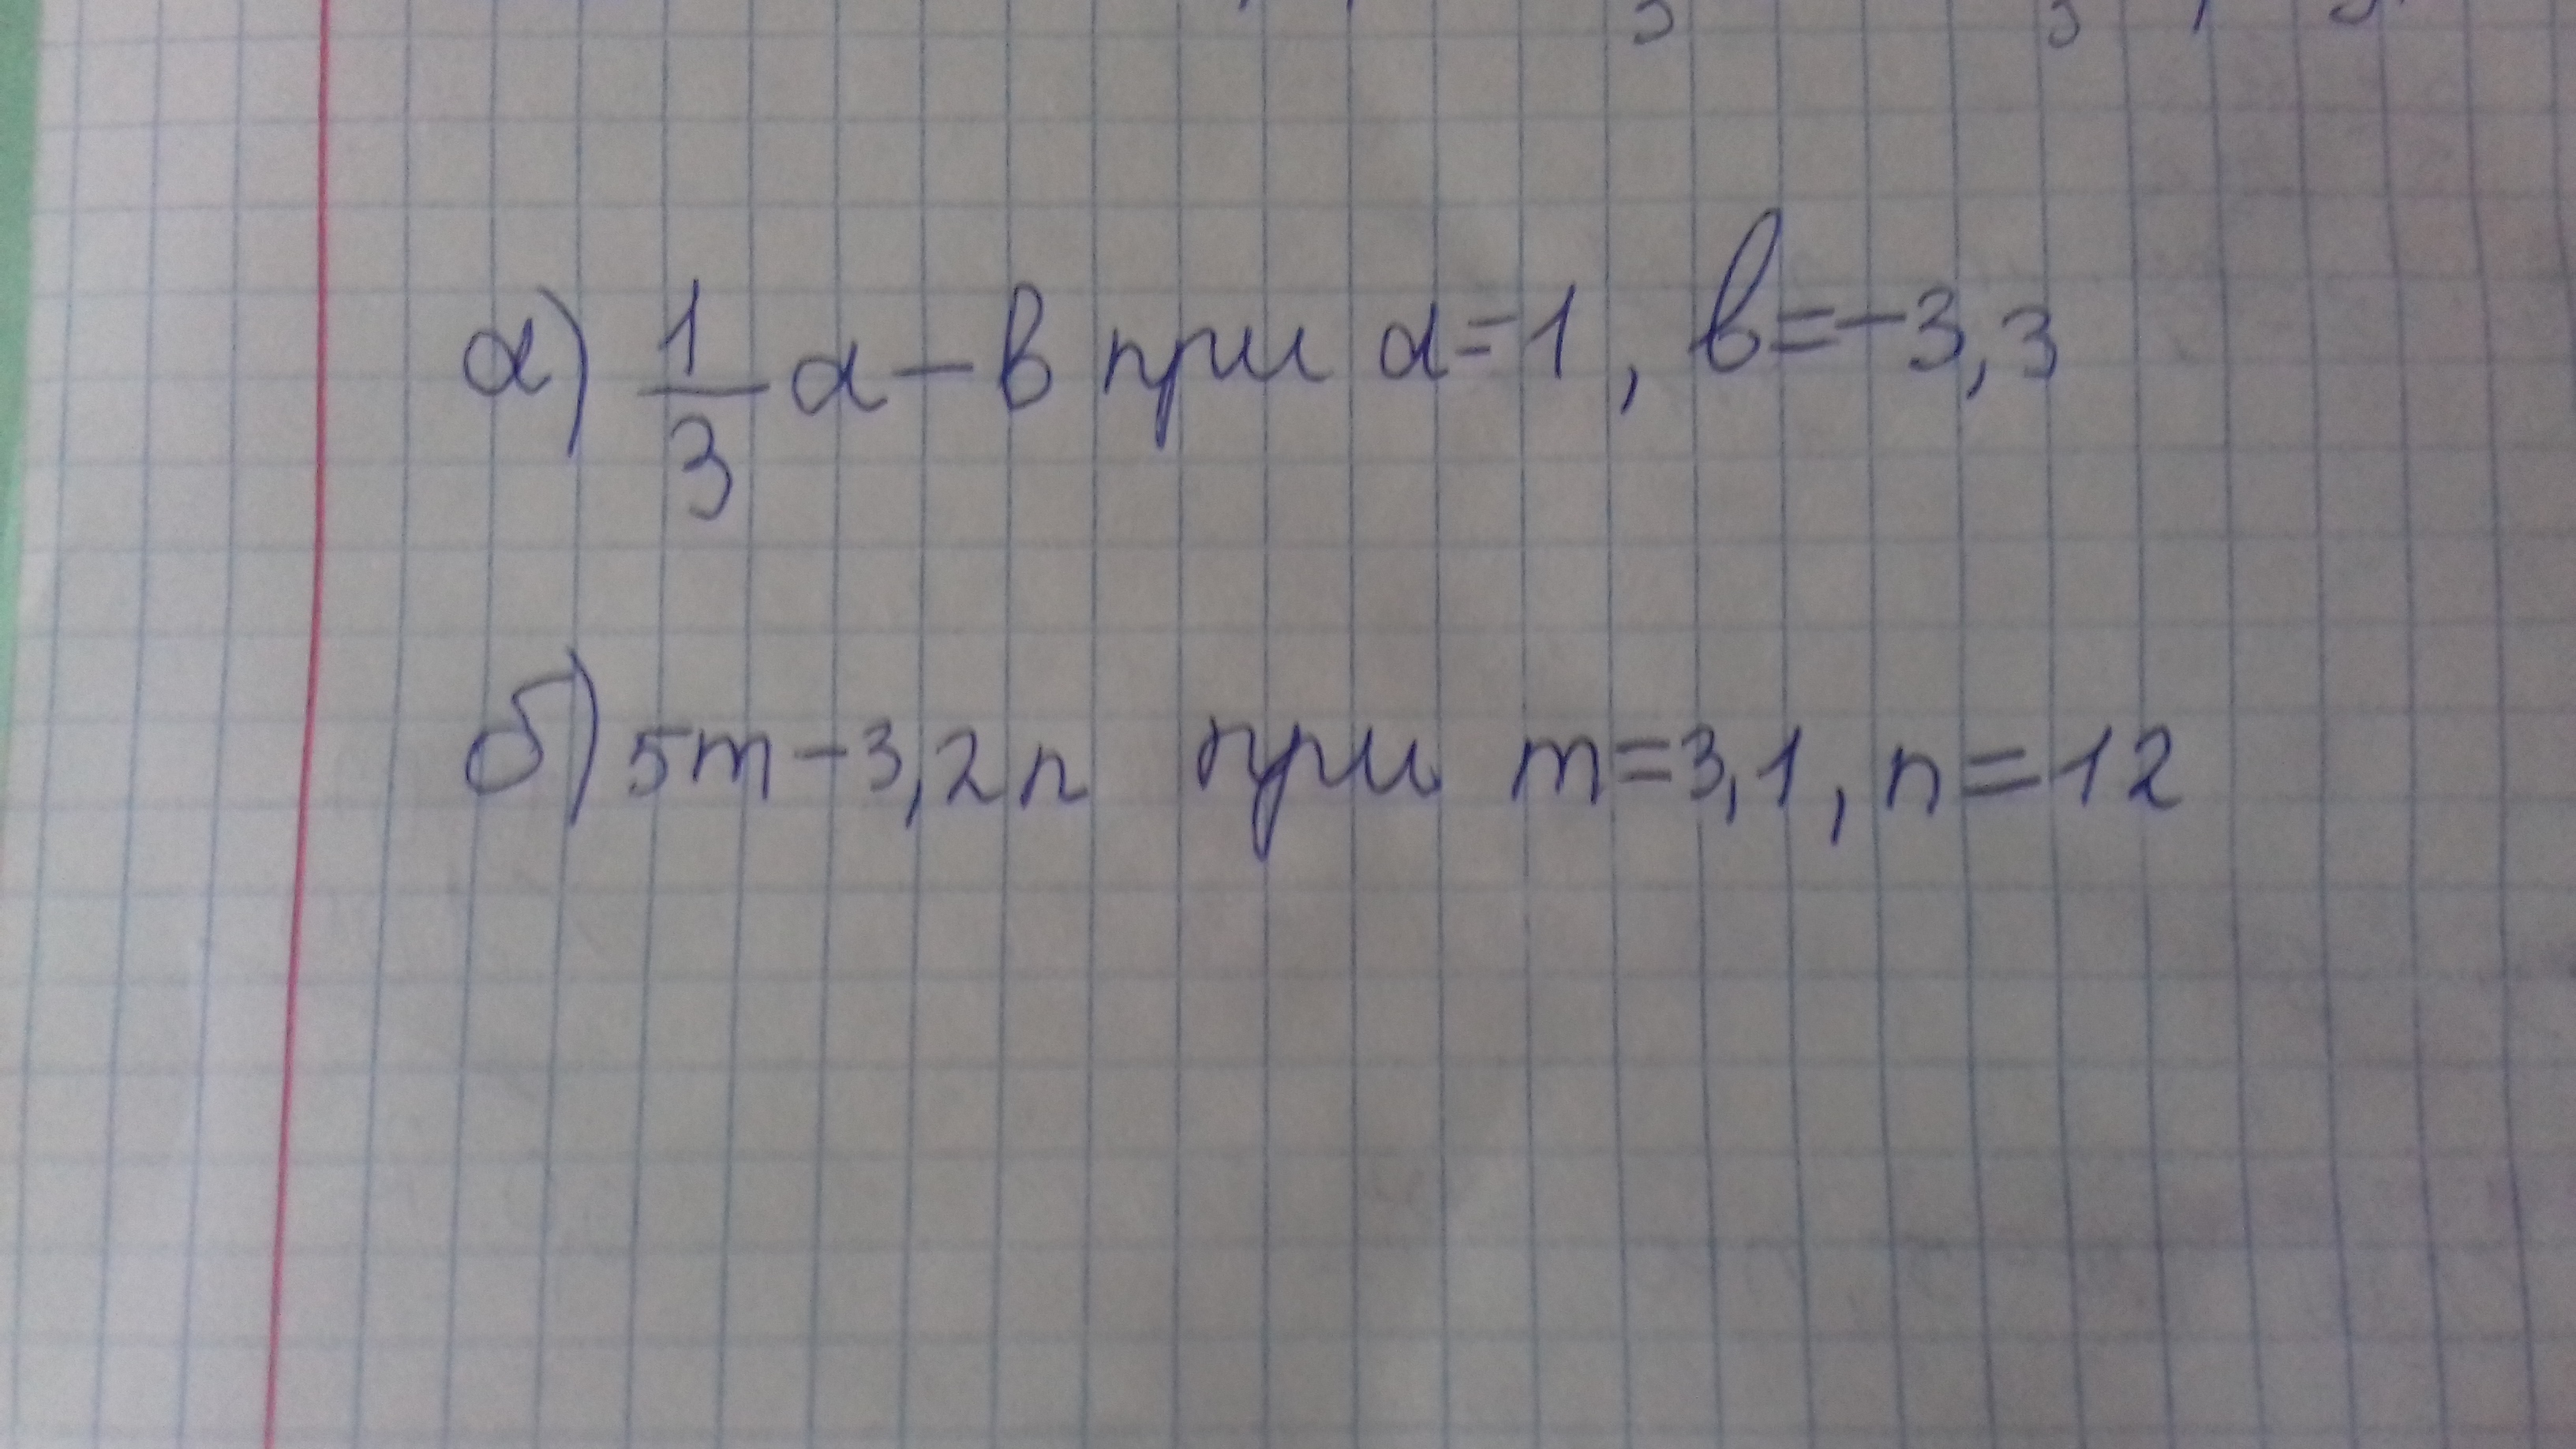 а) 1/3 a - b при a=1, b=-3,3
б) 5m-3,2n при m=3,1, n=12